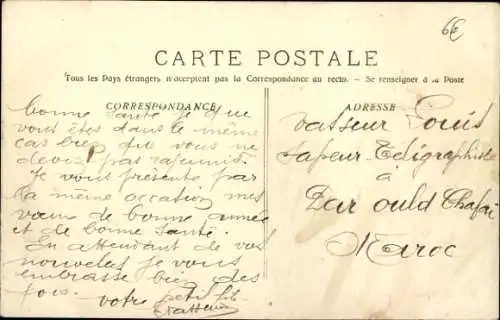 6€
CARTE POSTALE
Tous les Pays étrangers n'acceptent pas la Correspondance au recto. - Se renseigner à la Poste
CORRESPONDANCE
bonne santé je que
vous êtes dans le même
cas bien que vous ne
devis pas
Je vous présente par
la même occation mes
vœux de bonne année
et de bonne santé.
En attendant de vos
nouvelles je vous
embrasse bien des
fois. votre petit fils
Vasseur
ADRESSE
Vasseur Louis
Sapeur Télégraphiste
à
Dar ould Chafaï
Maroc